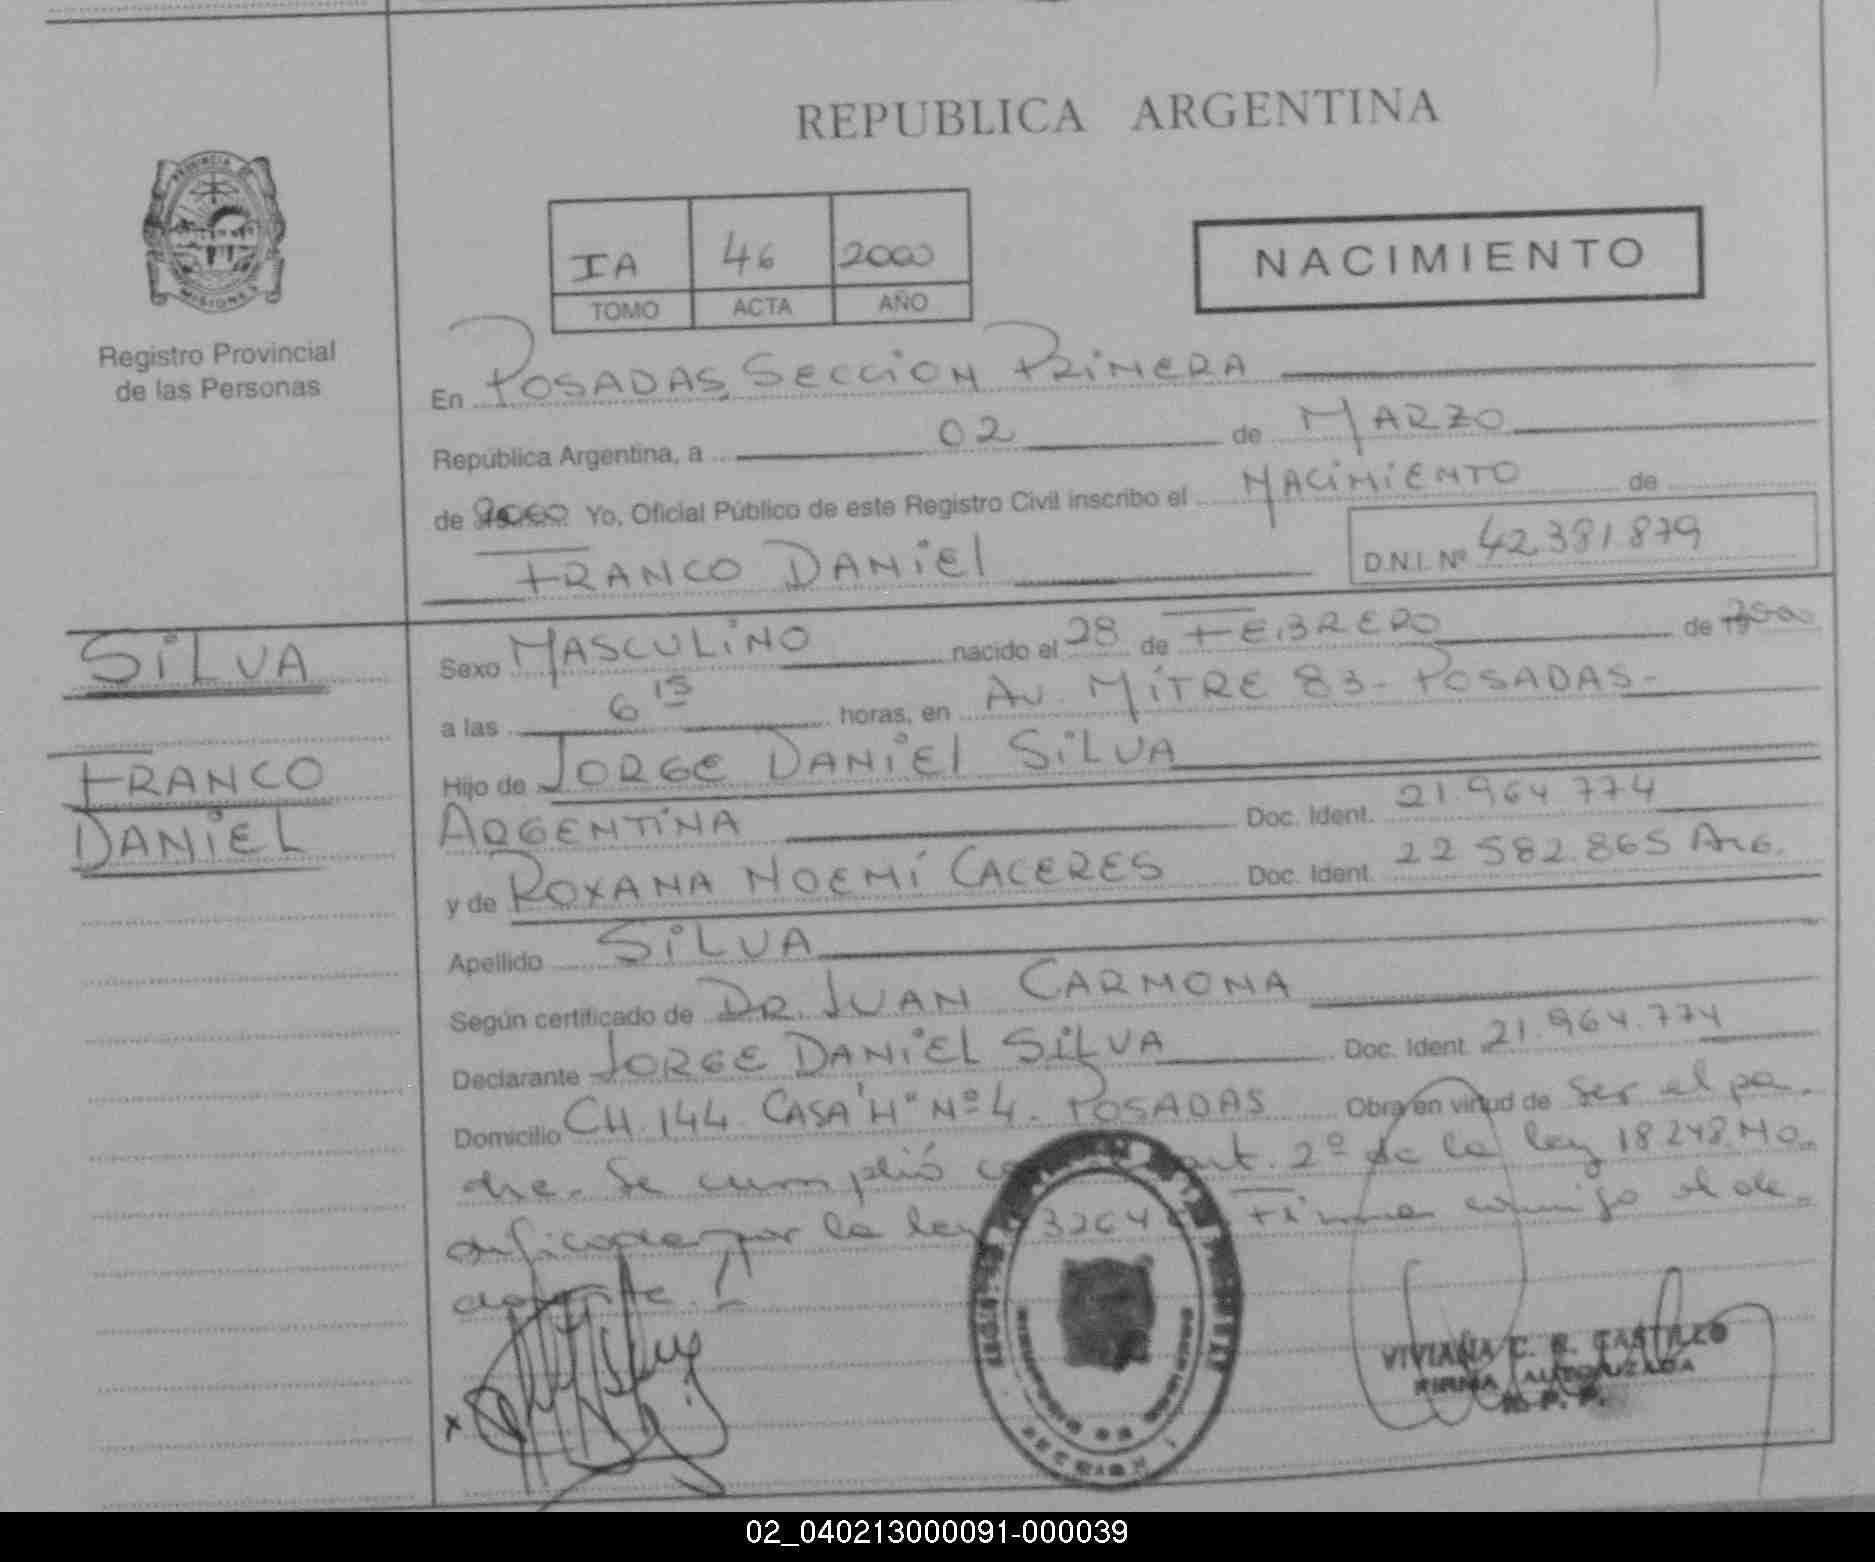 REPUBLICA ARGENTINA
PROVINCIA DE
MISIONES
Registro Provincial
de las Personas
IA 46 2000
TOMO ACTA AÑO
NACIMIENTO
En POSADAS, SECCION PRIMERA
República Argentina, a 02 de MARZO
de 2000 Yo, Oficial Público de este Registro Civil inscribo el NACIMIENTO de
FRANCO DANIEL
D.N.I. Nº 42.381.879
SILVA
FRANCO
DANIEL
Sexo MASCULINO nacido el 28 de FEBRERO de 2000
a las 6 15 horas, en AV. MITRE 83 - POSADAS -
Hijo de JORGE DANIEL SILVA
ARGENTINA Doc. Ident. 21.964.774
y de ROXANA NOEMÍ CACERES Doc. Ident. 22.582.865 ARG.
Apellido SILVA
Según certificado de DR. JUAN CARMONA
Declarante JORGE DANIEL SILVA Doc. Ident. 21.964.774
Domicilio CH. 144. CASA "H" Nº 4. POSADAS Obra en virtud de ser el pa.
dre. Se cumplió art. 2º de la ley 18248 Mo.
dificada por la ley Firma conmigo el de.
clarante.
VIVIANA C. R. CASTILLO
FIRMA AUTORIZADA
R. P. P.
02_040213000091-000039